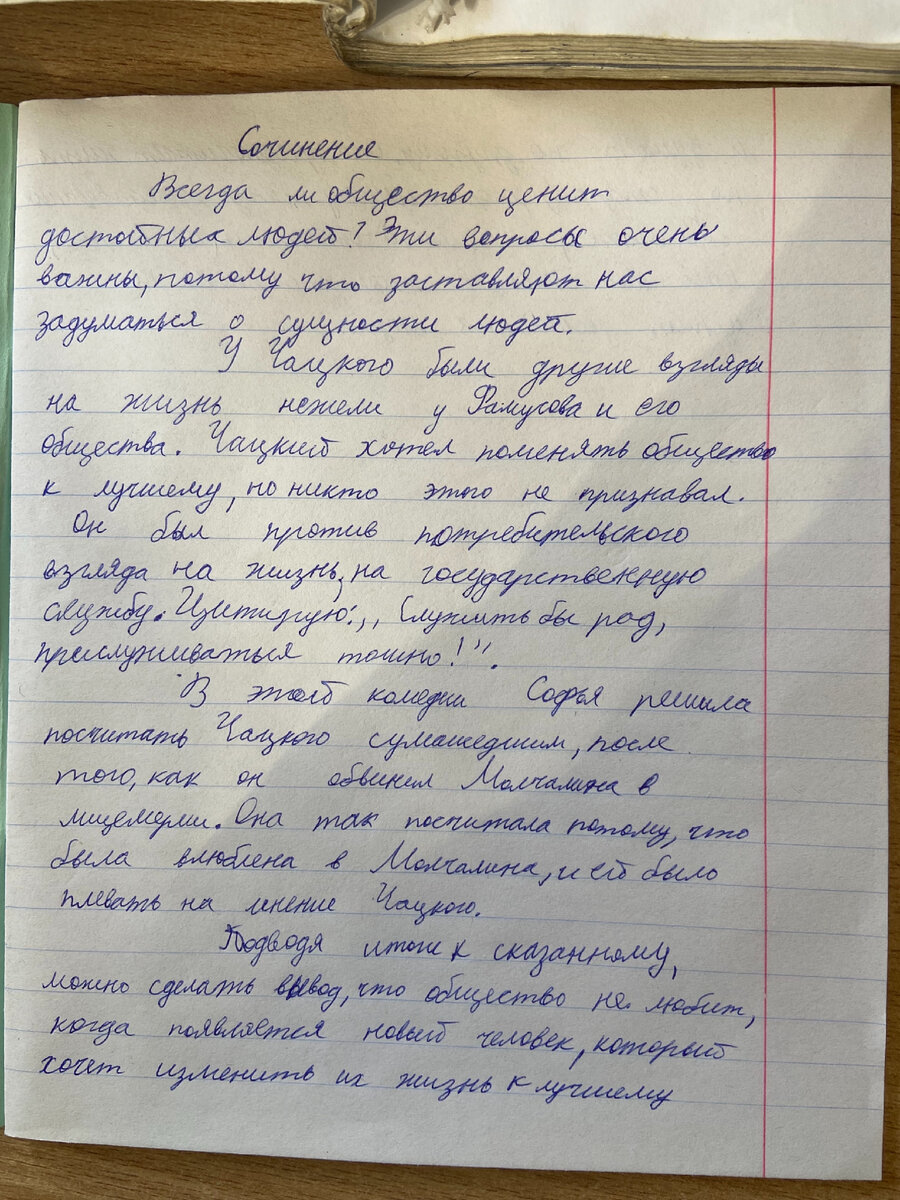 Сочинение
Всегда ли общество ценит
достойных людей? Эти вопросы очень
важны, потому что заставляют нас
задуматься о сущности людей.
У Чацкого были другие взгляды
на жизнь нежели у Фамусова и его
общества. Чацкий хотел поменять общество
к лучшему, но никто этого не признавал.
Он был против потребительского
взгляда на жизнь, на государственную
службу. Цитирую: ,, Служить бы рад,
прислуживаться тошно!".
В этой комедии Софья решила
посчитать Чацкого сумашедшим, после
того, как он обвинил Молчалина в
лицемерии. Она так посчитала потому, что
была влюблена в Молчалина, и ей было
плевать на мнение Чацкого.
Подводя итоги к сказанному,
можно сделать вывод, что общество не любит,
когда появляется новый человек, который
хочет изменить их жизнь к лучшему